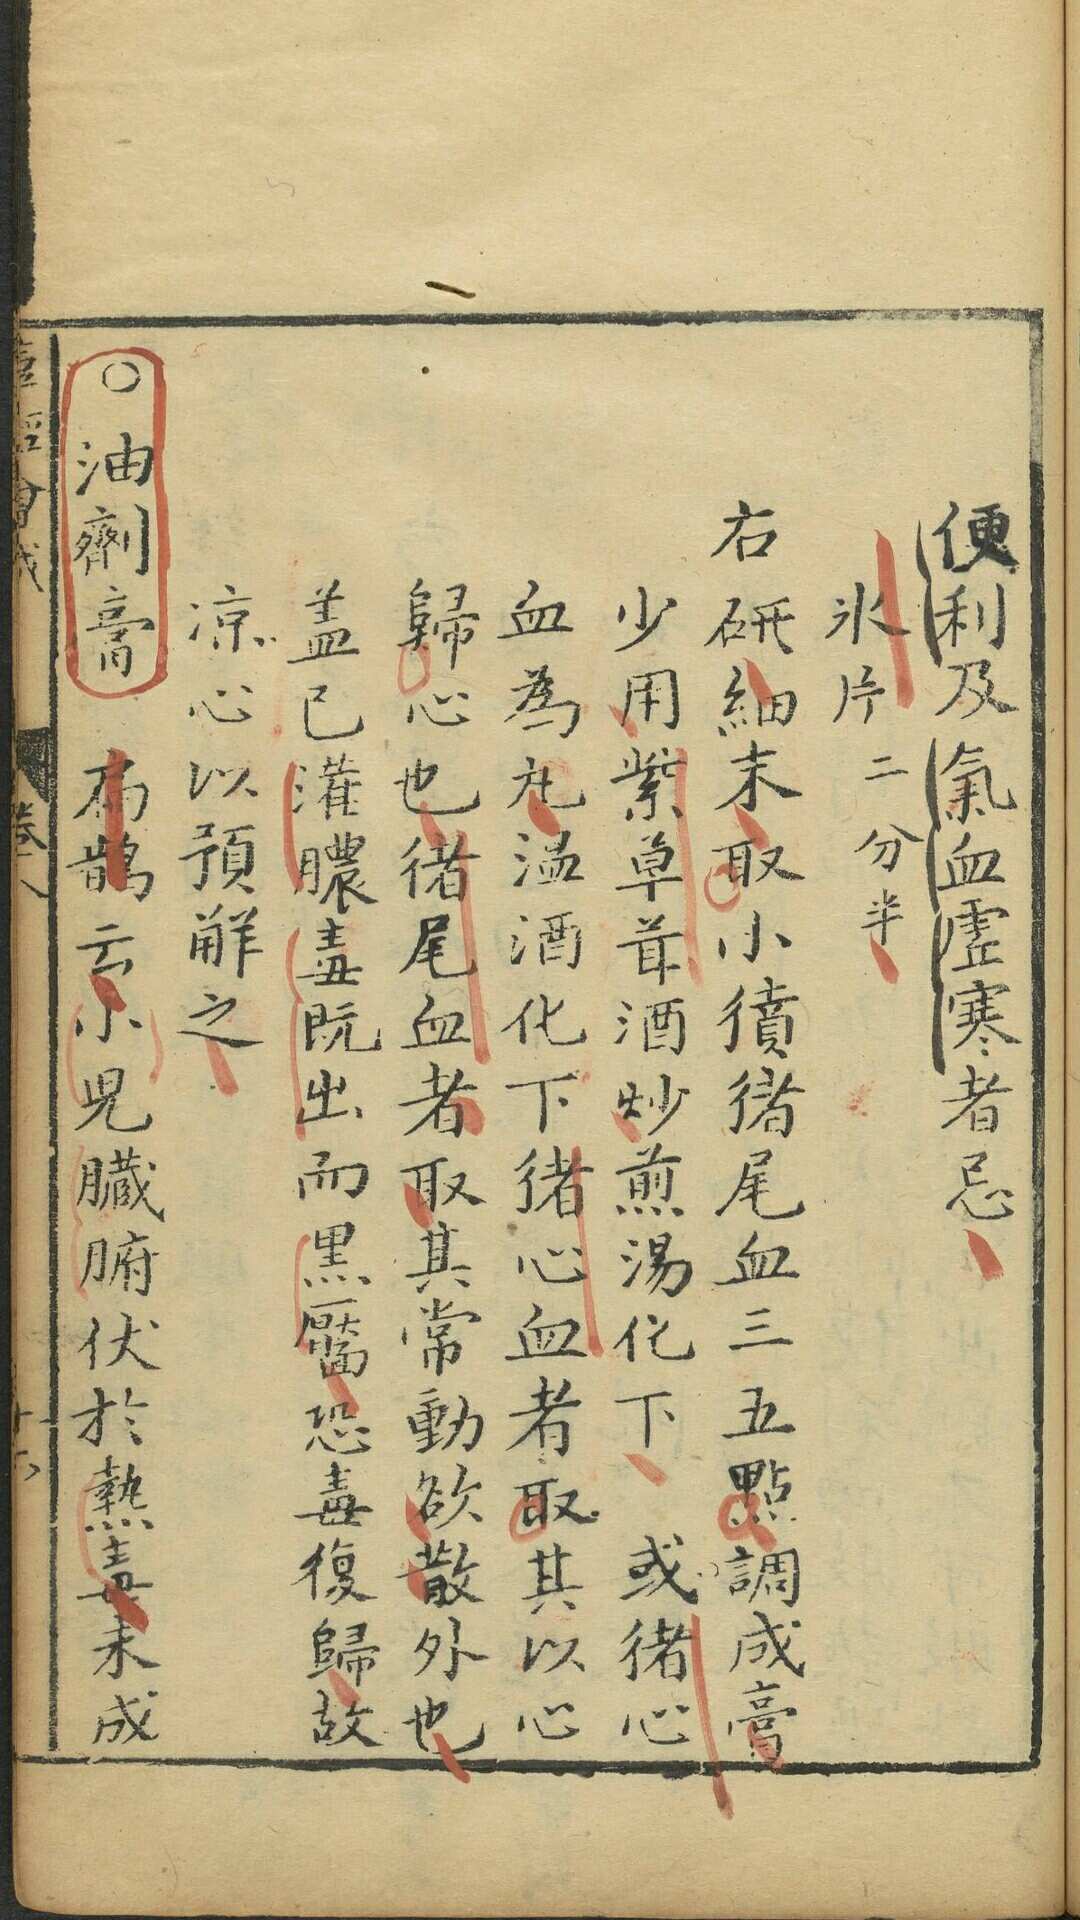 便利及氣血虛寒者忌
氷片二分半
右研細末取小㹔猪尾血三五點調成膏
少用紫草茸酒炒煎湯化下 或猪心
血為丸溫酒化下猪心血者取其以心
歸心也猪尾血者取其常動欲散外也
盖已灌膿毒既出而黒靨恐毒復歸故
凉心以預解之
○油劑膏 扁鵲云小兒臟腑伏於熱毒未成